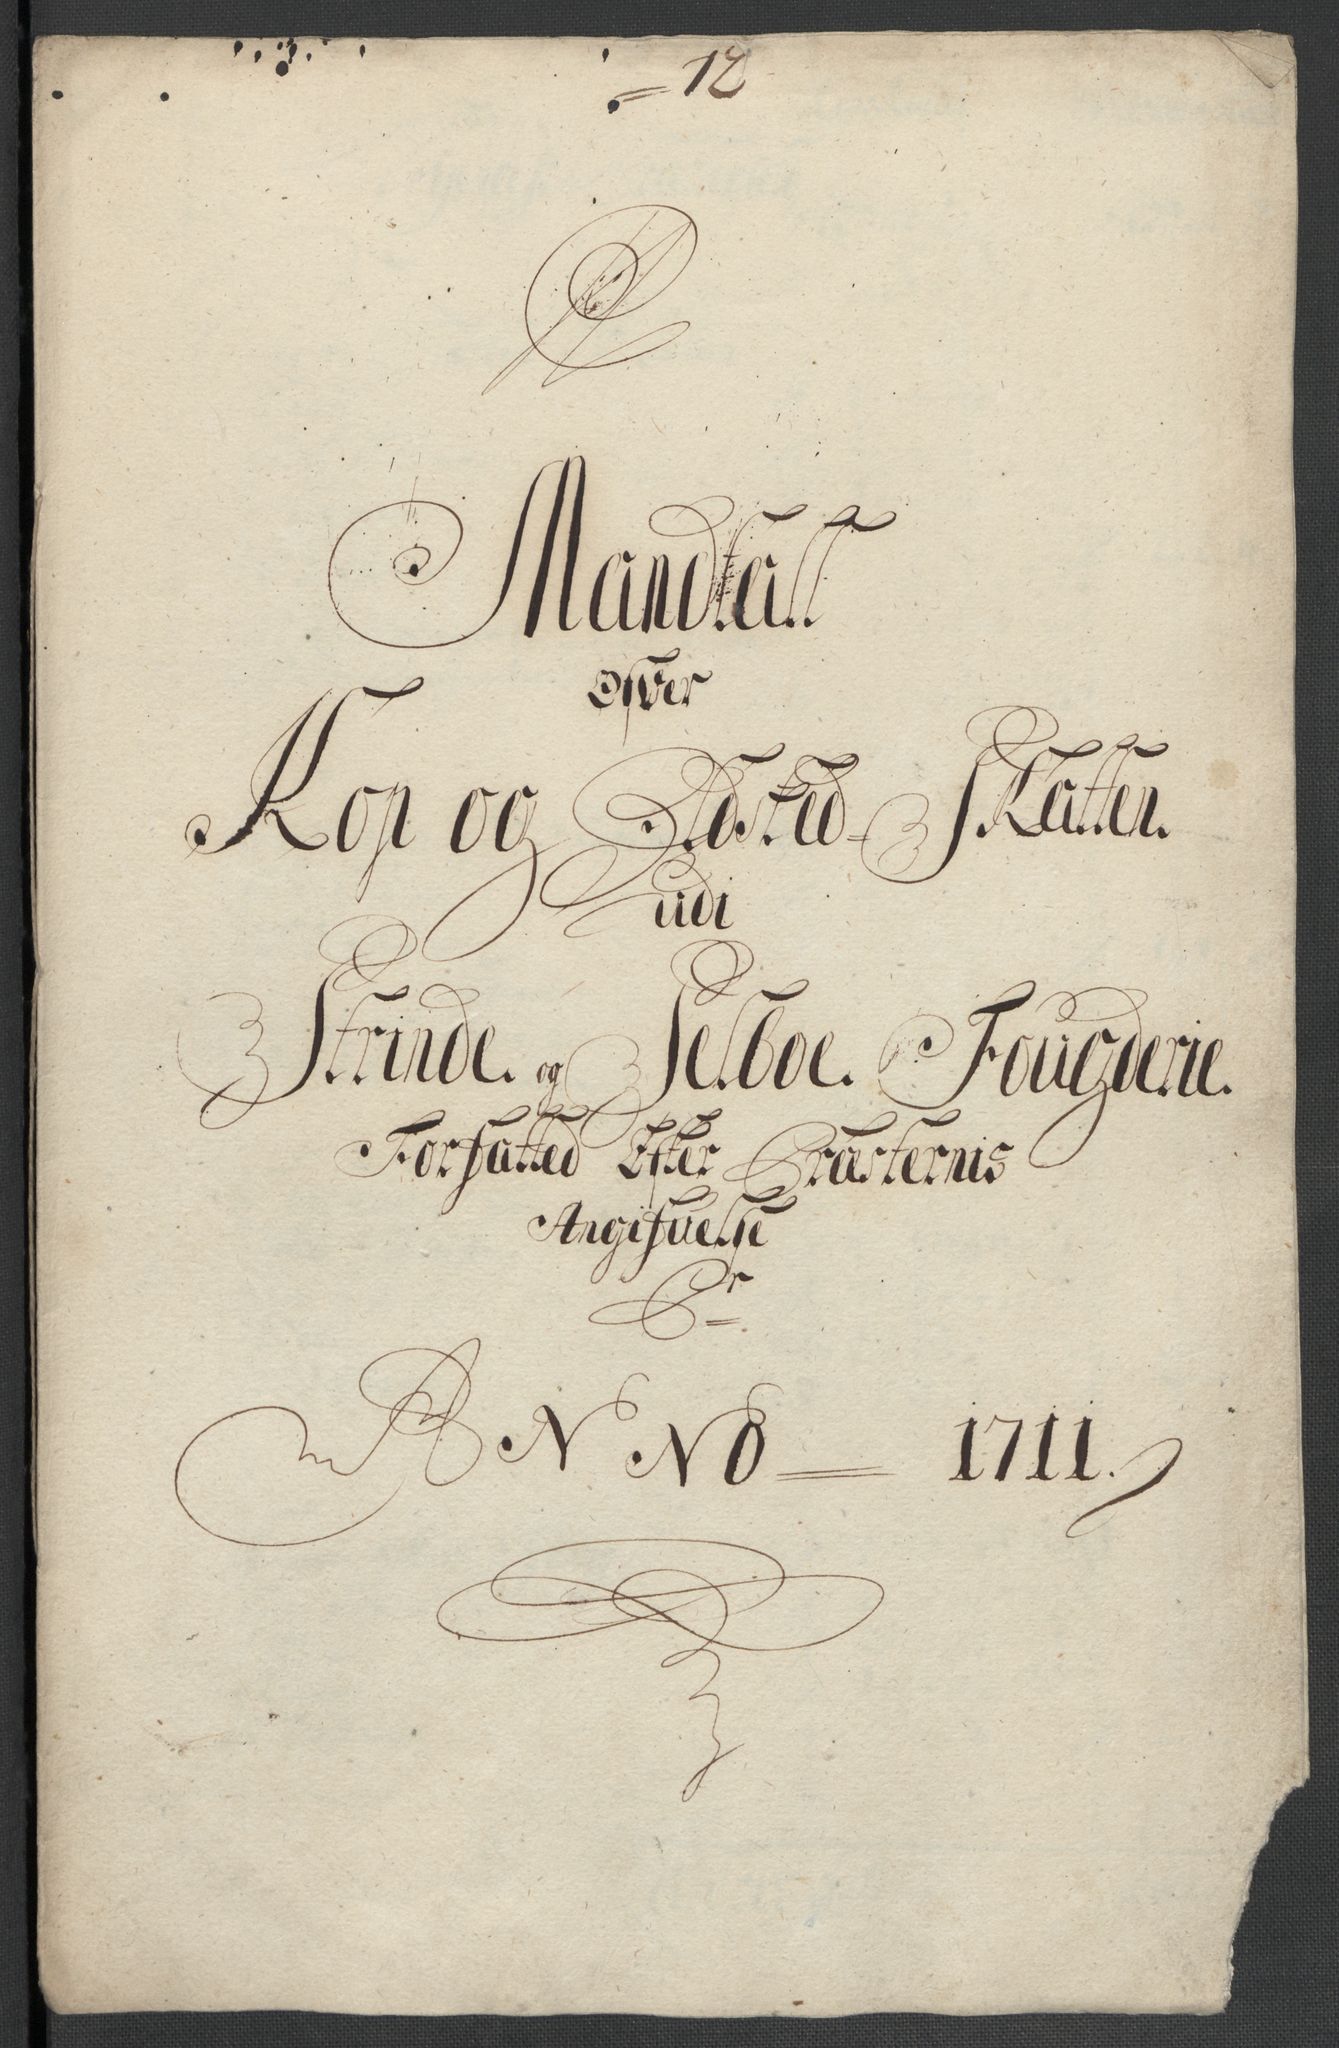 = 12
Mandtall
Ofver
Kop og Ildsted Skatten.
udi
Strinde. og Selboe. Fougderie.
Forfatted Efter Præsternis
Angifuelse
Pr
ANNO = 1711.